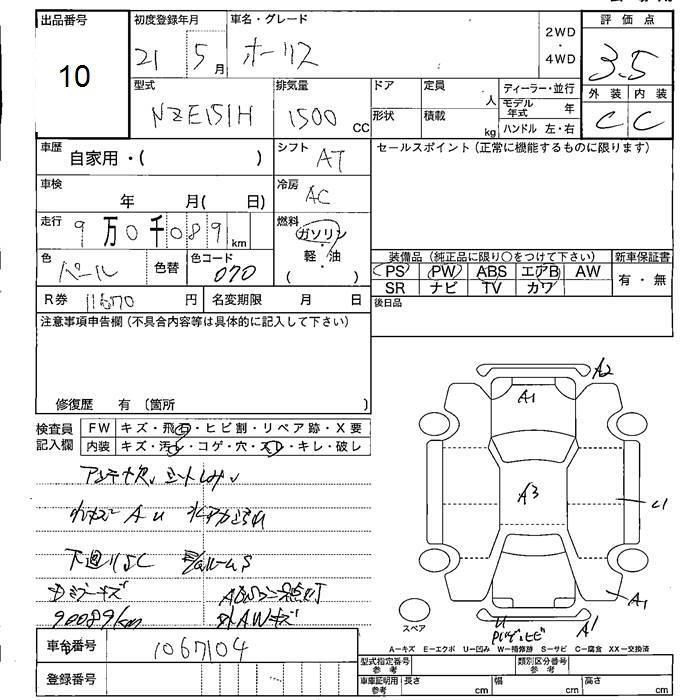 出品番号
10
初度登録年月
21 5月
車名・グレード
オーリス
2WD
・
4WD
評価点
3.5
型式
NZE151H
排気量
1500 CC
ドア
形状
定員 人
積載 kg
ディーラー・並行
モデル年式 年
ハンドル 左・右
外装 内装
C C
車歴
自家用・( )
シフト
AT
セールスポイント(正常に機能するものに限ります)
車検
年 月( 日)
冷房
AC
走行
9万0千089km
燃料
ガソリン
軽・油
( )
色
パール
色替
色コード
070
装備品(純正品に限り○をつけて下さい)
新車保証書
PS PW ABS エアB AW
有・無
SR ナビ TV カワ
R券 11670円
名変期限 月 日
後日品
注意事項申告欄(不具合内容等は具体的に記入して下さい)
修復歴 有 〔箇所 〕
検査員
記入欄
FW キズ・飛石・ヒビ割・リペア跡・X要
内装 キズ・汚レ・コゲ・穴・スレ・キレ・破レ
下廻りSC
ドミラーキズ
90089km
外AWキズ
A2
A1
A3
U1
A1
U
A1
スペア
A−キズ E−エクボ U−凹み W−補修跡 S−サビ C−腐食 XX−交換済
車台番号
1067104
登録番号
型式指定番号
参考
類別区分番号
参考
車庫証明用
参考
長さ cm
幅 cm
高さ cm